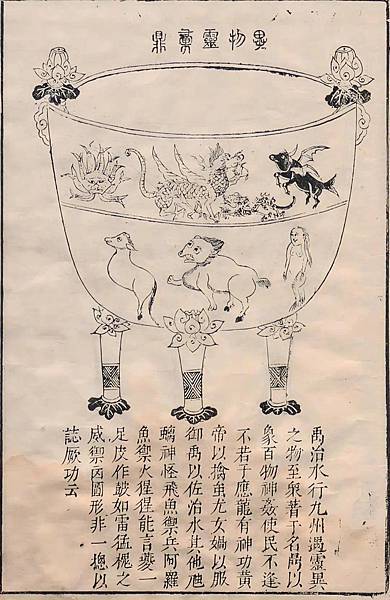 異物靈鼎
禹治水行九州遇靈異
之物至衆昔于名鼎以
象百物神姦使民不逢
不若于應龍有神功黃
帝以擒蚩尤女媧以服
御禹以佐治水其他
螭神怪飛魚禦兵阿羅
魚禦火猩猩能言夔一
足皮作皷如雷猛槐之
威禦凶圖形非一摠以
誌厥功云